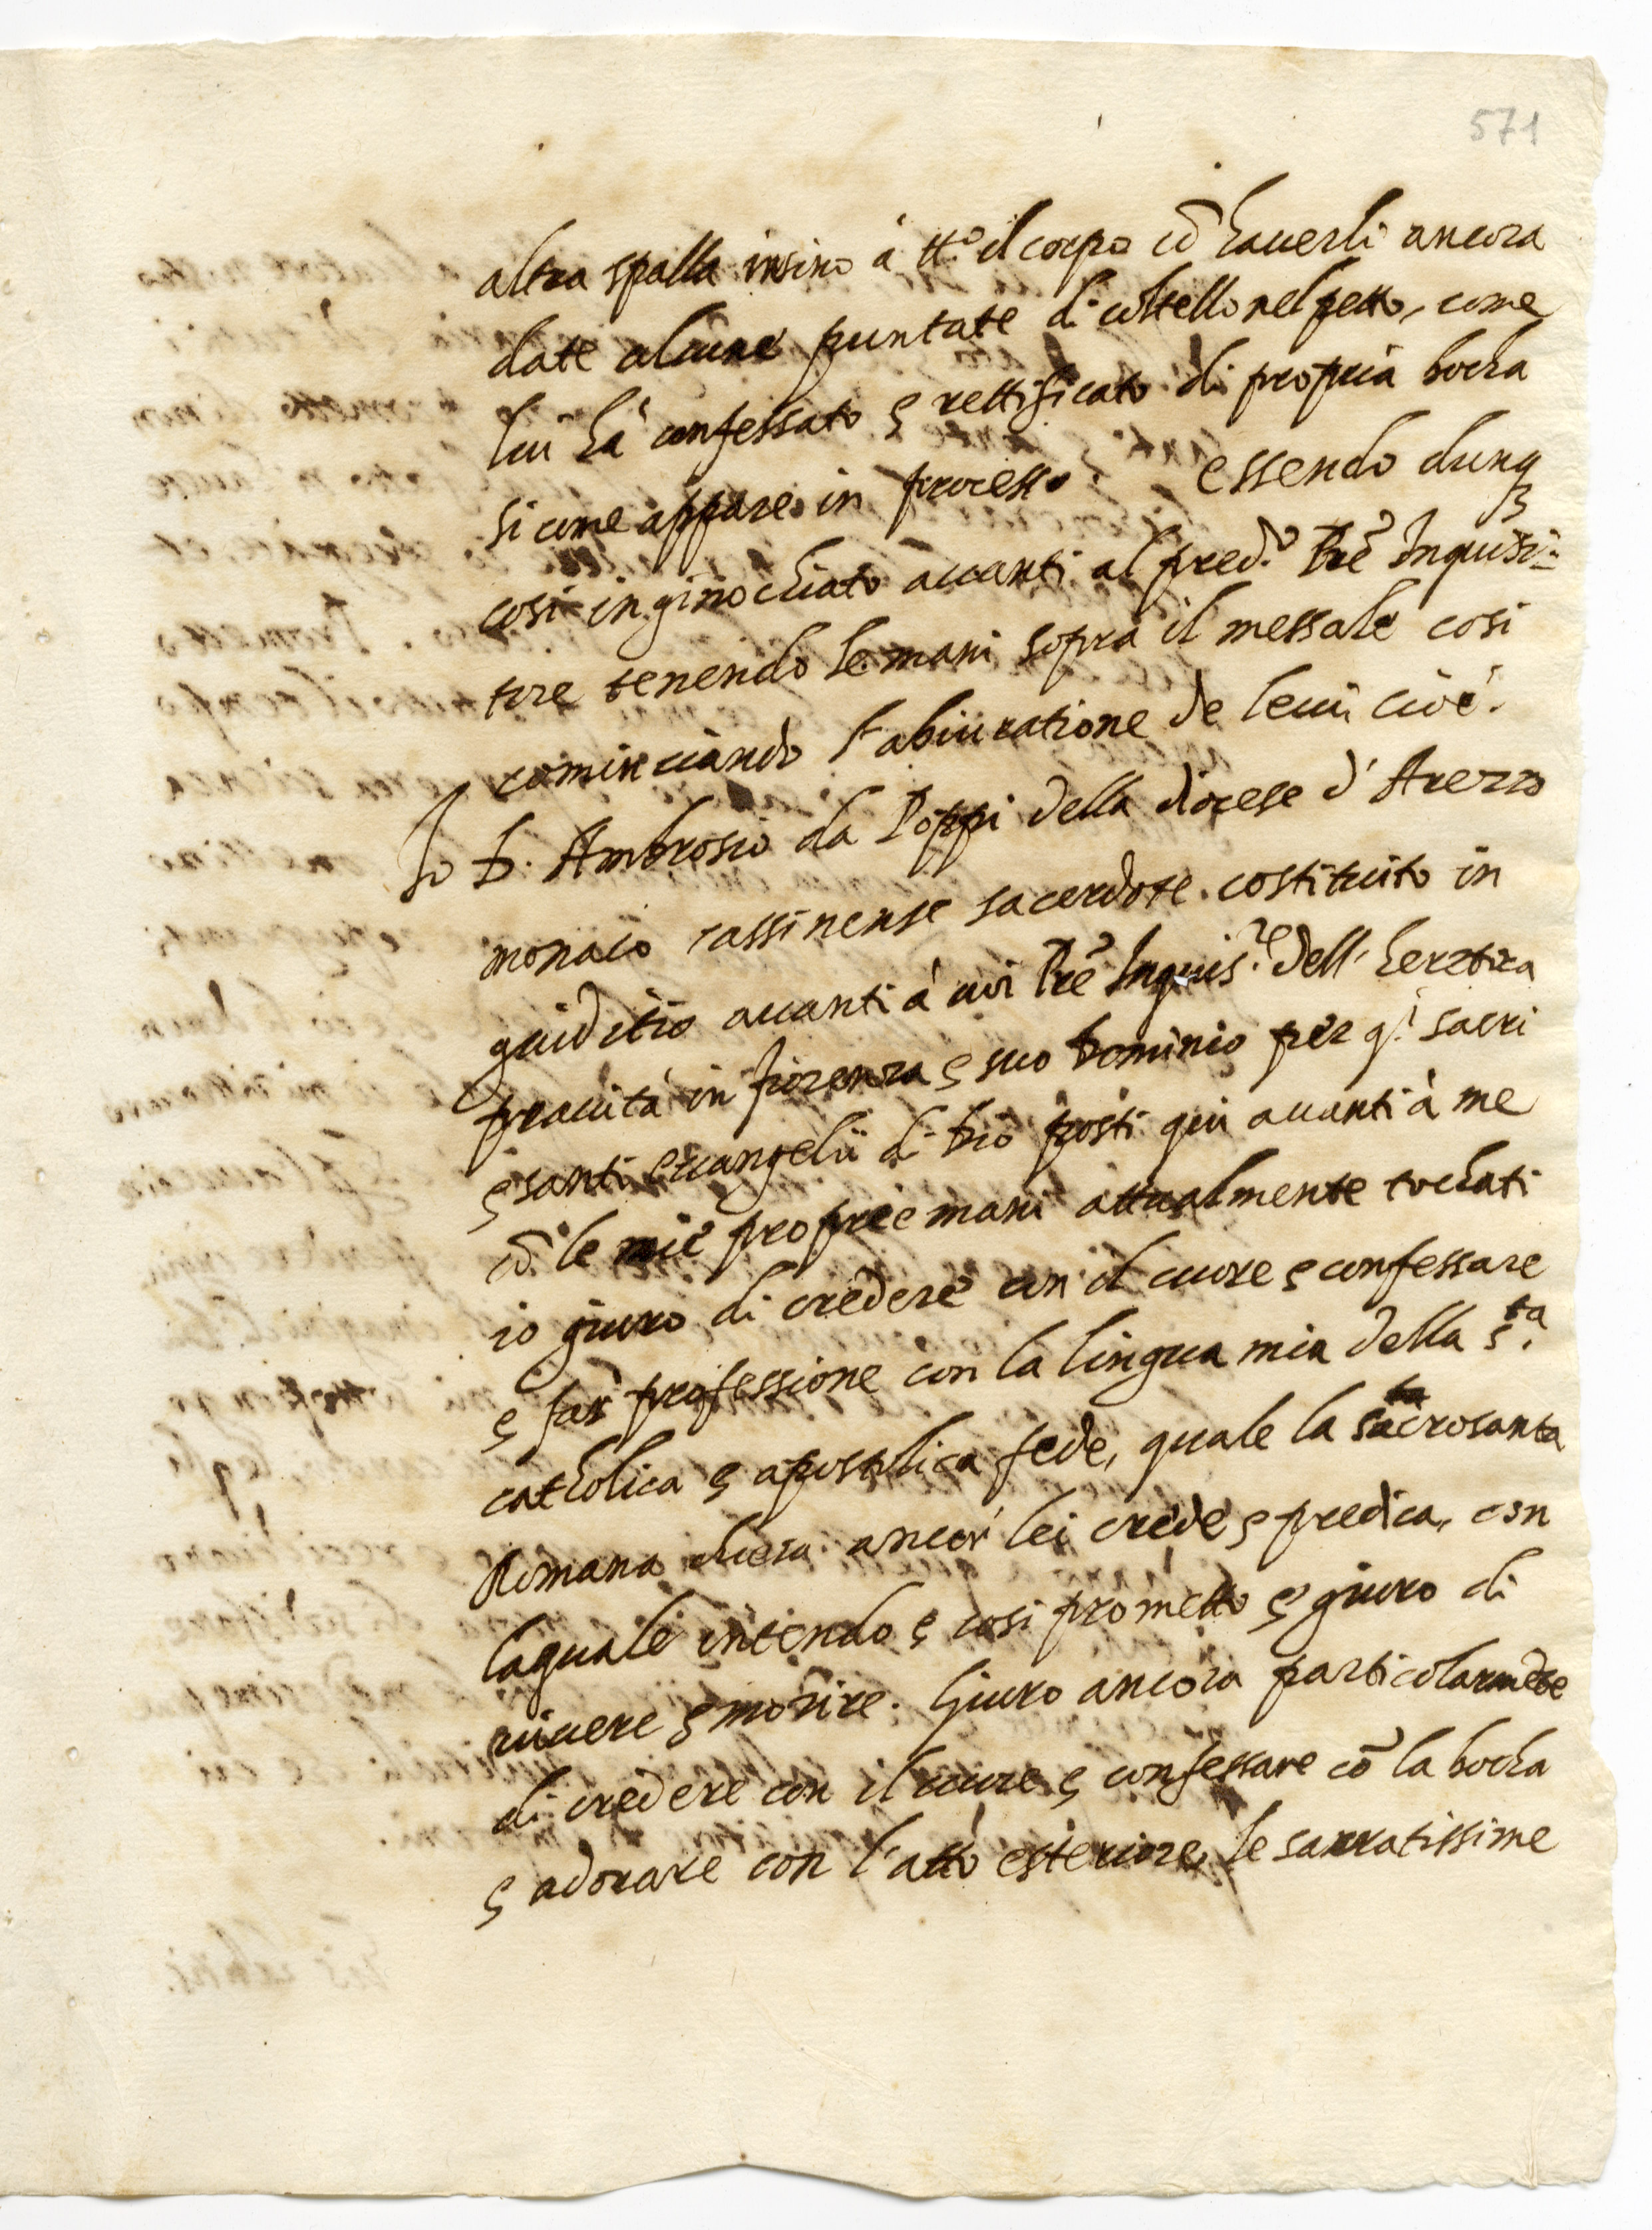 571
altra spalla insino à tt.º il corpo cō haverli ancora
date alcune puntate di coltello nel petto, come
lui hà confessato e rettificato di propria bocha
si come appare in processo. essendo dunq3
cosi inginochiato avanti al pred.º Prē Inquisi=
tore tenendo le mani sopra il messale cosi
cominciando l'abiuratione de levi cioè.
Io D. Ambrosio da Poppi della diocese d'Arezzo
monaco cassinense sacerdote costituito in
giuditio avanti à voi Prē Inquis.re dell'heretica
pravità in fiorenza e suo Dominio per q.i sacri
e santi evangelii di Dio posti qui avanti à me
cō le mie proprie mani attualmente tochati
io giuro di credere con il cuore e confessare
e far professione con la lingua mia della s.ta
catholica e apostolica fede, quale la sacrosanta
Romana chiesa ancor lei crede e predica, con
laquale intendo e cosi prometto e giuro di
vivere e morire. Giuro ancora particolarmēte
di credere con il cuore e confessare cō la bocha
e adorare con l'atto esteriore, le sacratissime